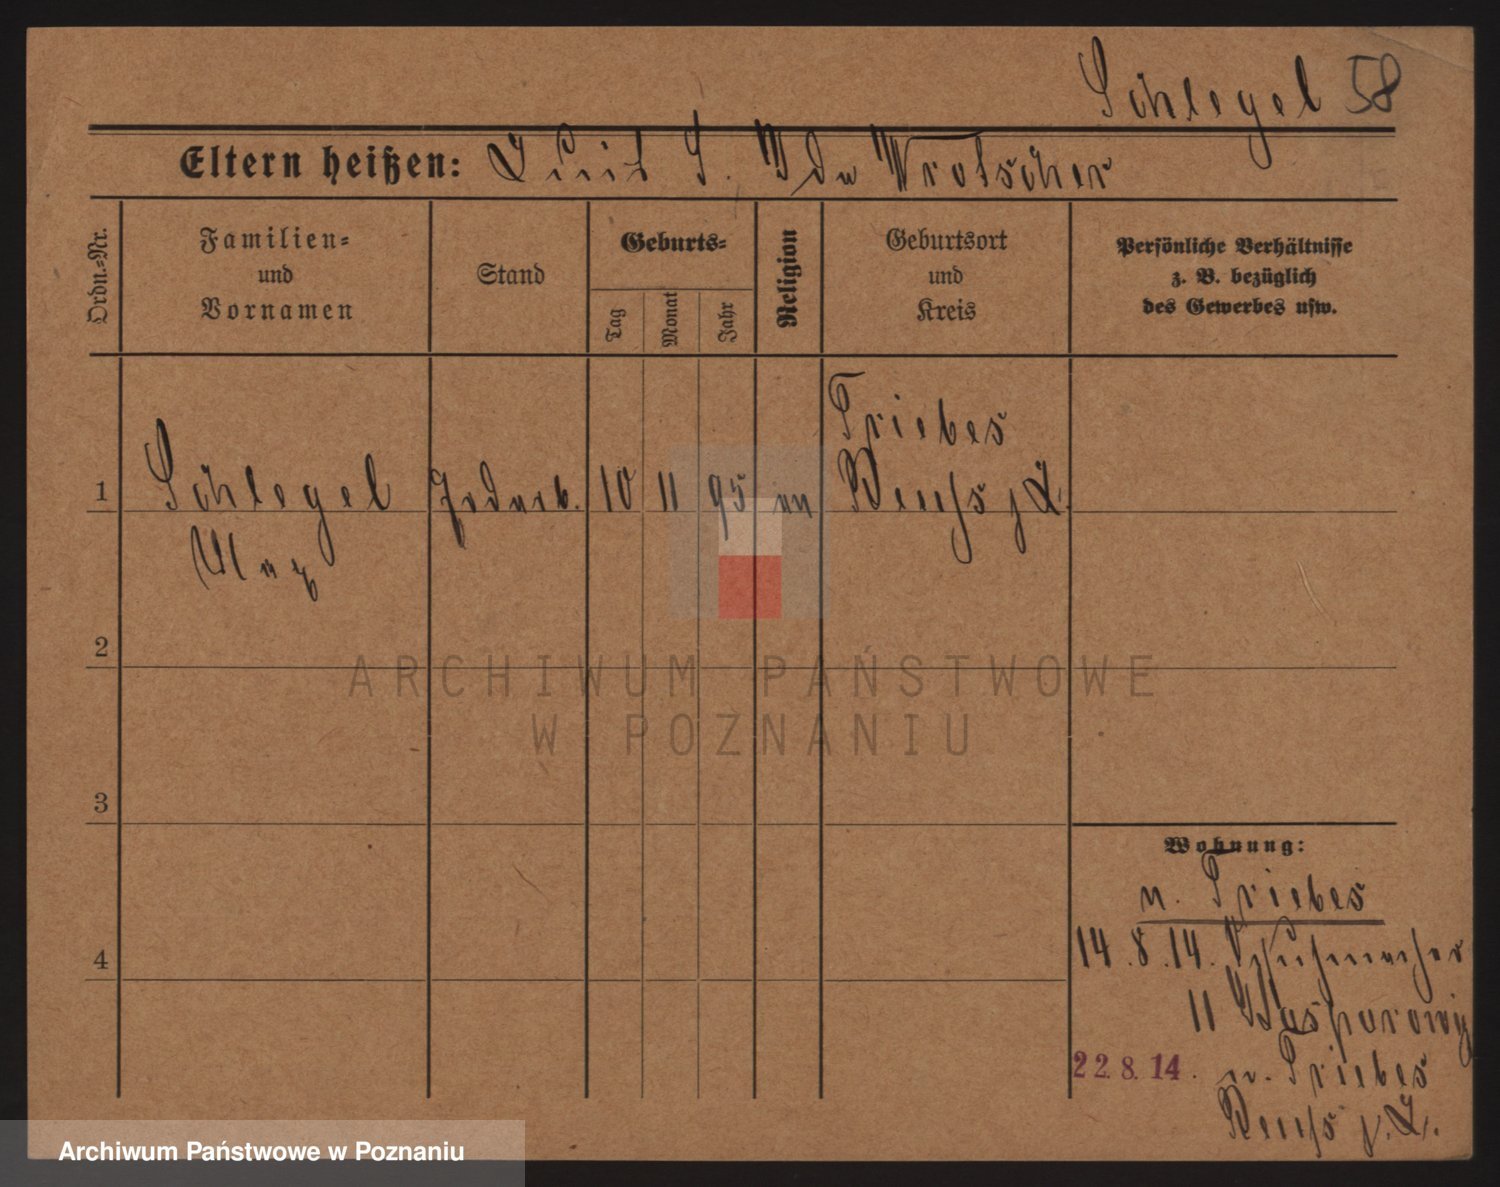 Schlegel 58
Eltern heißen: Louis S. Ida Wrotscher
Ordn.=Nr.
Familien=
und
Vornamen
Stand
Geburts=
Tag
Monat
Jahr
Religion
Geburtsort
und
Kreis
Persönliche Verhältnisse
z. B. bezüglich
des Gewerbes usw.
Triebes
1 Schlegel 10 11 95 Reuss j. L.
Max
2
3
4
Wohnung:
n. Triebes
14.8.14. Schuhmacher
11
22.8.14. n. Triebes
Reuss j. L.
ARCHIWUM PAŃSTWOWE
W POZNANIU
Archiwum Państwowe w Poznaniu